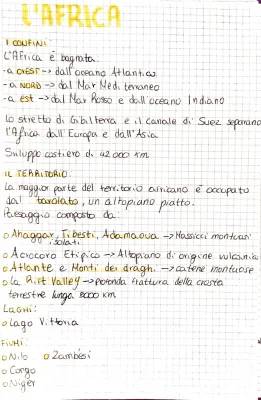 L'AFRICA
I CONFINI
L'Africa è bagnata
-a OVEST → dall'oceano Atlantico
-a NORD → dal Mar Mediterraneo
-a EST → dal Mar Rosso e dall'oceano Indiano
lo stretto di Gibilterra e il canale di Suez separano
l'Africa dall'Europa e dall'Asia
Sviluppo costiero di 42 000 km
IL TERRITORIO
la maggior parte del territorio africano è occupato
dal tavolato, un altopiano piatto.
Paesaggio composto da:
○ Ahaggar, Tibesti, Adamaoua → Massicci montuosi
isolati
○ Acrocoro Etiopico → Altopiano di origine vulcanica
○ Atlante e Monti dei draghi → catene montuose
○ la Rift Valley → profonda frattura della crosta
terrestre lunga 8000 km
LAGHI:
○ Lago Vittoria
FIUMI:
○ Nilo ○ Zambesi
○ Congo
○ Niger